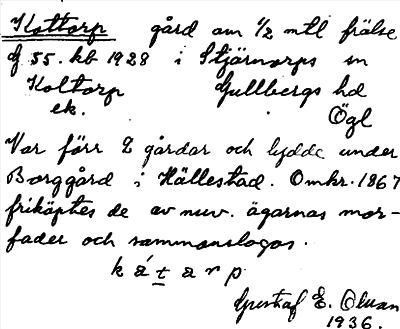 Kottorp gård om 1/2 mtl frälse
Jf 55. kb 1928 i Stjärnorps sn
Koltorp Gullbergs hd
ek. Ögl
Var förr 2 gårdar och lydde under
Borggård i Hällestad. Omkr. 1867
friköptes de av nuv. ägarnas mor-
fader och sammanslogos.
k á t a r p
Gustaf E. Olsson
1936.